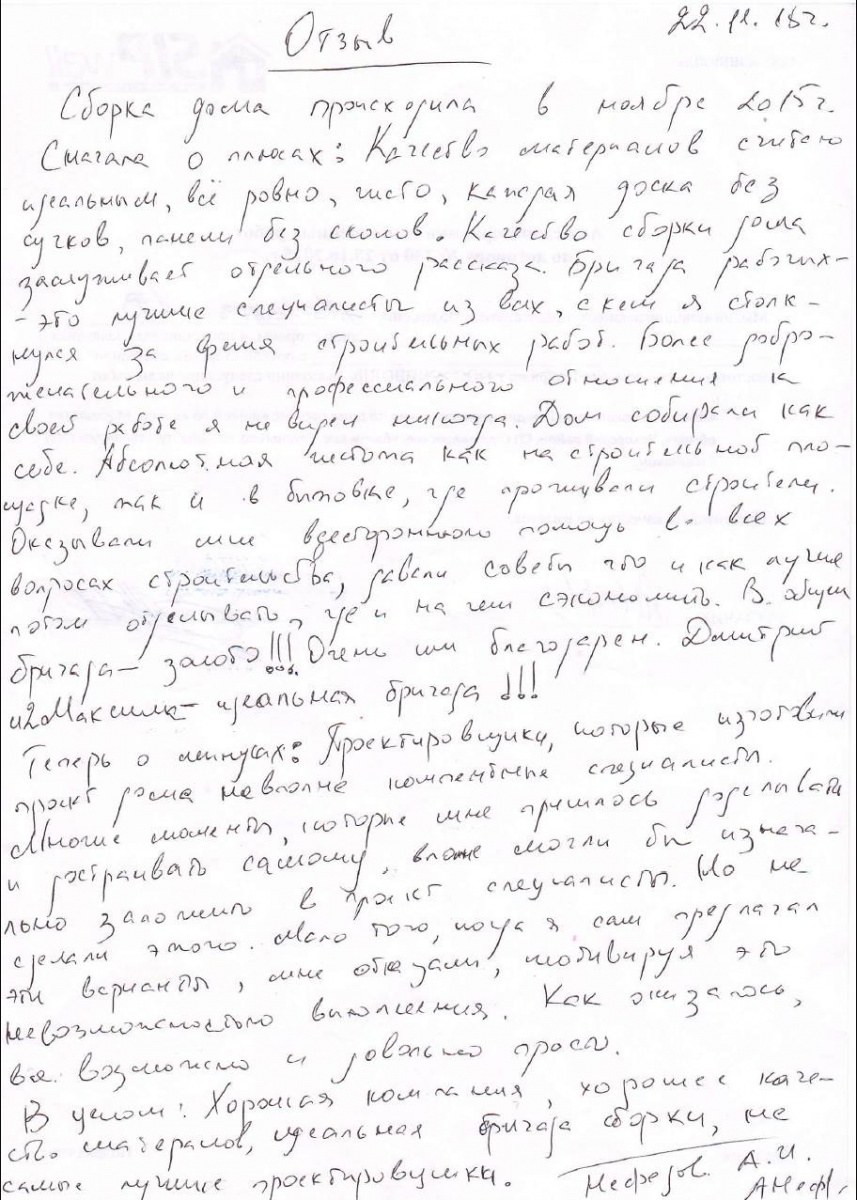 Отзыв
22.11.15г.
Сборка дома происходила в ноябре 2015г.
Сначала о плюсах: Качество материалов считаю
идеальным, всё ровно, чисто, каждая доска без
сучков, панели без сколов. Качество сборки дома
заслуживает отдельного рассказа. Бригада рабочих-
- это лучшие специалисты из всех, с кем я столк-
нулся за время строительных работ. Более добро-
желательного и профессиального отношения к
своей работе я не видел никогда. Дом собирали как
себе. Абсолютная чистота как на строительной пло-
щадке, так и в бытовке, где проживали строители.
Оказывали мне всестороннюю помощь во всех
вопросах строительства, давали советы что и как лучше
потом отделывать, где и на чем сэкономить. В общем
бригада – золото!!! Очень им благодарен. Дмитрий
и 2 Максима – идеальная бригада!!!
Теперь о минусах: Проектировщики, которые изготовили
проект дома невполне компентные специалисты.
Многие моменты, которые мне пришлось доделывать
и достраивать самому, вполне могли бы изнача-
льно заложить в проект специалисты. Но не
сделали этого. Мало того, когда я сам предлагал
эти варианты, мне отказали, мотивируя это
невозможностью выполнения. Как оказалось,
все возможно и довольно просто.
В целом: Хорошая компания, хорошее каче-
ство матералов, идеальная бригада сборки, не
самые лучшие проектировщики. Нефедов. А.И.